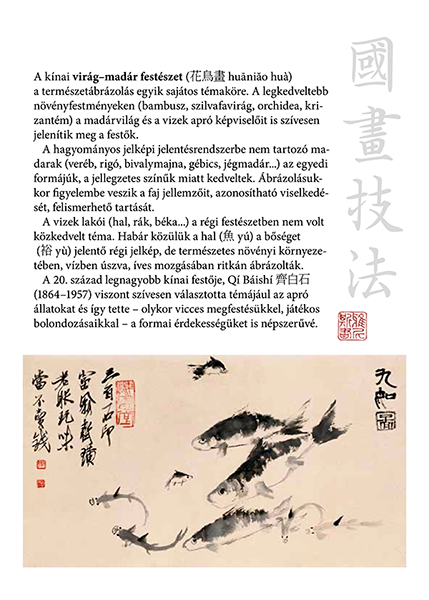 A kínai virág–madár festészet (花鳥畫 huāniǎo huà)
a természetábrázolás egyik sajátos témaköre. A legkedveltebb
növényfestményeken (bambusz, szilvafavirág, orchidea, kri-
zantém) a madárvilág és a vizek apró képviselőit is szívesen
jelenítik meg a festők.
A hagyományos jelképi jelentésrendszerbe nem tartozó ma-
darak (veréb, rigó, bivalymajna, gébics, jégmadár...) az egyedi
formájúk, a jellegzetes színűk miatt kedveltek. Ábrázolásuk-
kor figyelembe veszik a faj jellemzőit, azonosítható viselkedé-
sét, felismerhető tartását.
A vizek lakói (hal, rák, béka...) a régi festészetben nem volt
közkedvelt téma. Habár közülük a hal (魚 yú) a bőséget
(裕 yù) jelentő régi jelkép, de természetes növényi környeze-
tében, vízben úszva, íves mozgásában ritkán ábrázolták.
A 20. század legnagyobb kínai festője, Qí Báishí 齊白石
(1864–1957) viszont szívesen választotta témájául az apró
állatokat és így tette – olykor vicces megfestésükkel, játékos
bolondozásaikkal – a formai érdekességüket is népszerűvé.
國畫技法
九如圖
三百石印
富翁齊璜
老眼玩味
當不賣錢